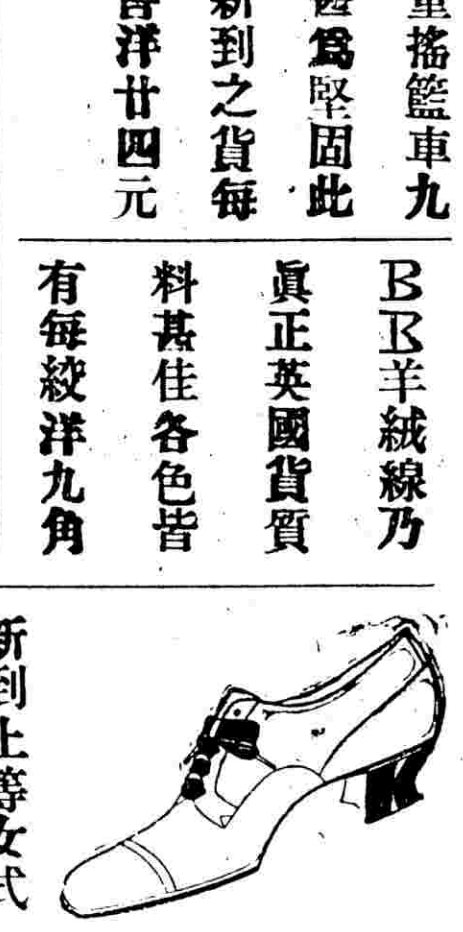 搖籃車九
爲堅固此
到之貨每
洋廿四元
BB羊絨線乃
眞正英國貨質
料甚佳各色皆
有每絞洋九角
新到上等女式